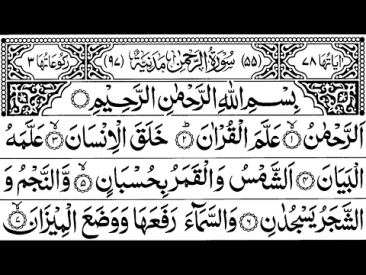 اٰیَاتُهَا ۷۸ (۵۵) سُوْرَةُ الرَّحْمٰنِ مَدَنِيَّةٌ (۹۷) رُكُوْعَاتُهَا ۳
بِسْمِ اللّٰهِ الرَّحْمٰنِ الرَّحِيْمِ
اَلرَّحْمٰنُ ۙ﴿۱﴾ عَلَّمَ الْقُرْاٰنَ ؕ﴿۲﴾ خَلَقَ الْاِنْسَانَ ۙ﴿۳﴾ عَلَّمَهُ
الْبَيَانَ ﴿۴﴾ اَلشَّمْسُ وَالْقَمَرُ بِحُسْبَانٍ ۪ۙ﴿۵﴾ وَّالنَّجْمُ وَ
الشَّجَرُ يَسْجُدٰنِ ﴿۶﴾ وَالسَّمَآءَ رَفَعَهَا وَوَضَعَ الْمِيْزَانَ ۙ﴿۷﴾